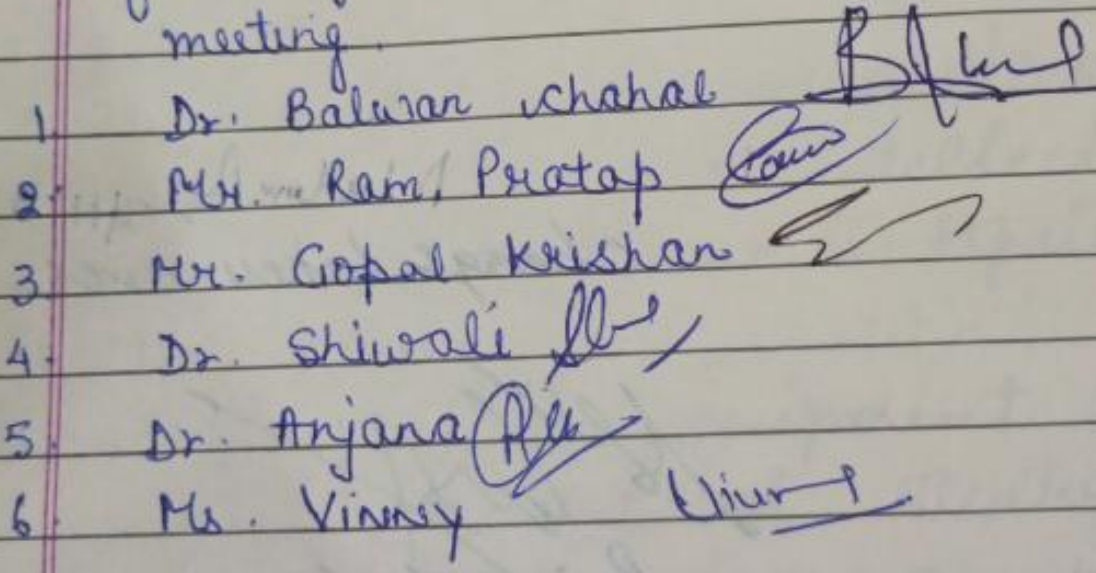 meeting.
1. Dr. Balwan Chahal
2. Mr. Ram Pratap
3. Mr. Gopal Krishan
4. Dr. Shiwali
5. Dr. Anjana
6. Ms. Vinny